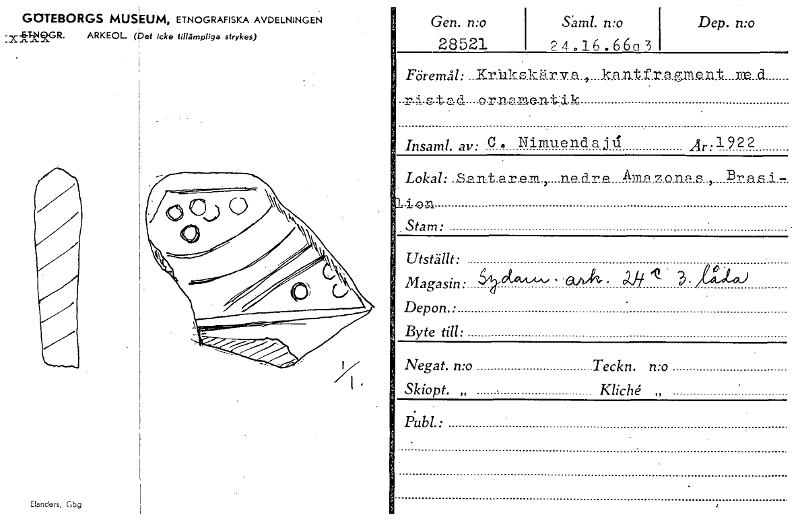 GÖTEBORGS MUSEUM, ETNOGRAFISKA AVDELNINGEN
ETNOGR. ARKEOL. (Det icke tillämpliga strykes)
1/1.
Elanders, Gbg
Gen. n:o Saml. n:o Dep. n:o
28521 24.16.66g3
Föremål: Krukskärva, kantfragment med
ristad ornamentik
Insaml. av: C. Nimuendajú År: 1922
Lokal: Santarem, nedre Amazonas, Brasi-
lien
Stam:
Utställt:
Magasin: Sydam. ark. 24 3. låda
Depon.:
Byte till:
Negat. n:o Teckn. n:o
Skiopt. „ Kliché „
Publ.: